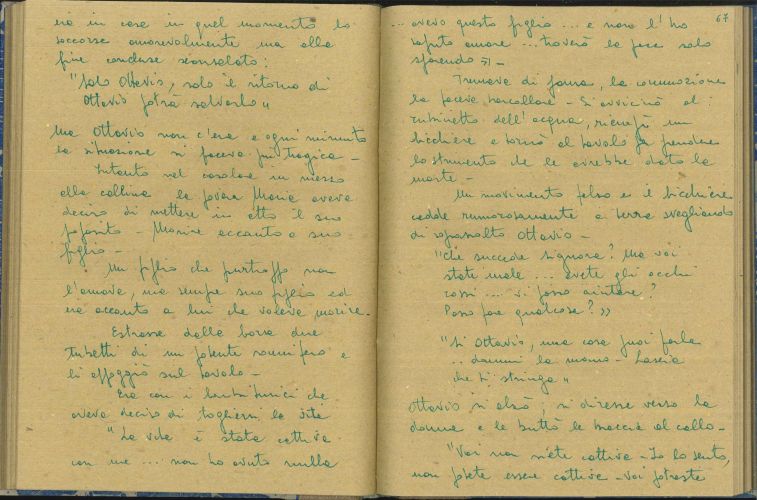 era in casa in quel momento lo
soccorse amorevolmente ma alla
fine concluse sconsolato:
"Solo Ottavio, solo il ritorno di
Ottavio potrà salvarlo"
Ma Ottavio non c'era e ogni minuto
la situazione si faceva più tragica -
Intanto nel casolare in mezzo
alla collina la povera Maria aveva
deciso di mettere in atto il suo
proposito - Morire accanto a suo
figlio -
Un figlio che purtroppo non
l'amava, ma sempre suo figlio ed
era accanto a lui che voleva morire.
Estrasse dalla borsa due
tubetti di un potente sonnifero e
li appoggiò sul tavolo -
Era con i barbiturici che
aveva deciso di togliersi la vita
"La vita è stata cattiva
con me ... non ho avuto nulla
67
... avevo questo figlio ... e non l'ho
saputo amare ... troverò la pace solo
morendo" -
Tremava di paura, la commozione
la faceva barcollare - Si avvicinò al
rubinetto dell'acqua, riempì un
bicchiere e tornò al tavolo a prendere
lo strumento che le avrebbe dato la
morte -
Un movimento falso e il bicchiere
cadde rumorosamente a terra svegliando
di soprassalto Ottavio -
"Che succede signora? Ma voi
state male ... avete gli occhi
rossi ... vi posso aiutare?
Posso fare qualcosa?"
"Si Ottavio, una cosa puoi farla
... dammi la mano - Lascia
che ti stringa"
Ottavio si alzò, si diresse verso la
donna e le buttò le braccia al collo -
"Voi non siete cattiva - Io lo sento,
non potete essere cattiva - Voi potreste